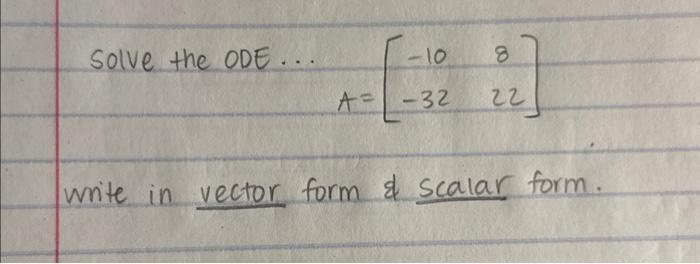 Solve the ODE...
A = [ -10 8
-32 22 ]
write in vector form & scalar form.